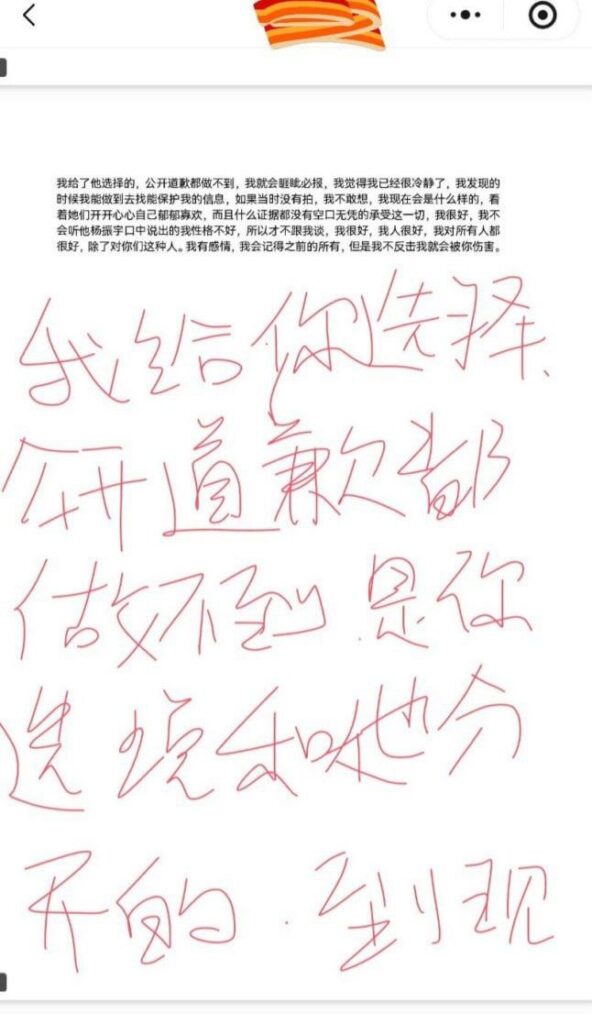 我给了他选择的，公开道歉都做不到，我就会睚眦必报，我觉得我已经很冷静了，我发现的
时候我能做到去找能保护我的信息，如果当时没有拍，我不敢想，我现在会是什么样的，看
着她们开开心心自己郁郁寡欢，而且什么证据都没有空口无凭的承受这一切，我很好，我不
会听他杨振宇口中说出的我性格不好，所以才不跟我谈，我很好，我人很好，我对所有人都
很好，除了对你们这种人。我有感情，我会记得之前的所有，但是我不反击我就会被你伤害。
我给你选择、
公开道歉都
做不到.是你
选 现和他分
开的.到现